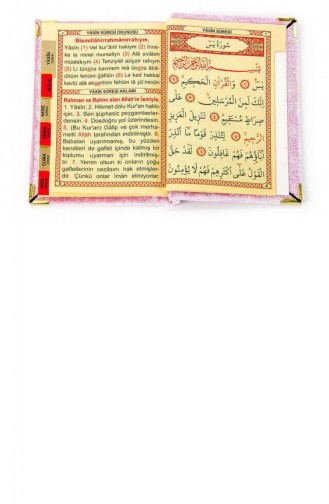 YÂSİN SÛRESİ OKUNUŞU
Bismillâhirrahmânirrahîm.
Yâsîn (1) Vel kur'ânil hakîym (2) İnne-
ke le minel murseliyn. (3) Alâ sırâtım
müstekıym (4) Tenziylel aziyzir rahıym
(5) Li tünzira kavmem mâ ünzira âbâ-
ühüm fehüm ğâfilûn (6) Le kad hakkal
kavlü alâ ekserihim fehüm lâ yü'minûn
YÂSİN SÛRESİ ANLAMI
Rahman ve Rahim olan Allah'ın ismiyle.
1. Yâsîn, 2. Hikmet dolu Kur'ân hakkı
için, 3. Sen şüphesiz peygamberler-
densin. 4. Dosdoğru yol üzerindesin.
5. (Bu Kur'an) Gâlip ve çok merha-
metli Allah tarafından indirilmiştir. 6.
Babaları uyarılmamış, bu yüzden
kendileri de gaflet içinde kalmış bir
toplumu uyarman için indirilmiş-
tir. 7. Yemin olsun ki onların çoğu
gafletlerinin cezâsını hak etmişler-
dir. Çünkü onlar îmân etmiyorlar.
YÂSİN
CUMA
YÂSİN SÛRESİ
سُورَةُ يٰسٓ
بِسْمِ اللهِ الرَّحْمٰنِ الرَّحِيمِ
يٰسٓ ۞ وَالْقُرْاٰنِ الْحَكِيمِ ۞
اِنَّكَ لَمِنَ الْمُرْسَلِينَ ۞ عَلٰى
صِرَاطٍ مُسْتَقِيمٍ ۞ تَنْزِيلَ الْعَزِيزِ
الرَّحِيمِ ۞ لِتُنْذِرَ قَوْمًا مَا اُنْذِرَ
اٰبَاؤُهُمْ فَهُمْ غَافِلُونَ ۞ لَقَدْ حَقَّ
الْقَوْلُ عَلٰى اَكْثَرِهِمْ فَهُمْ لَا يُؤْمِنُونَ